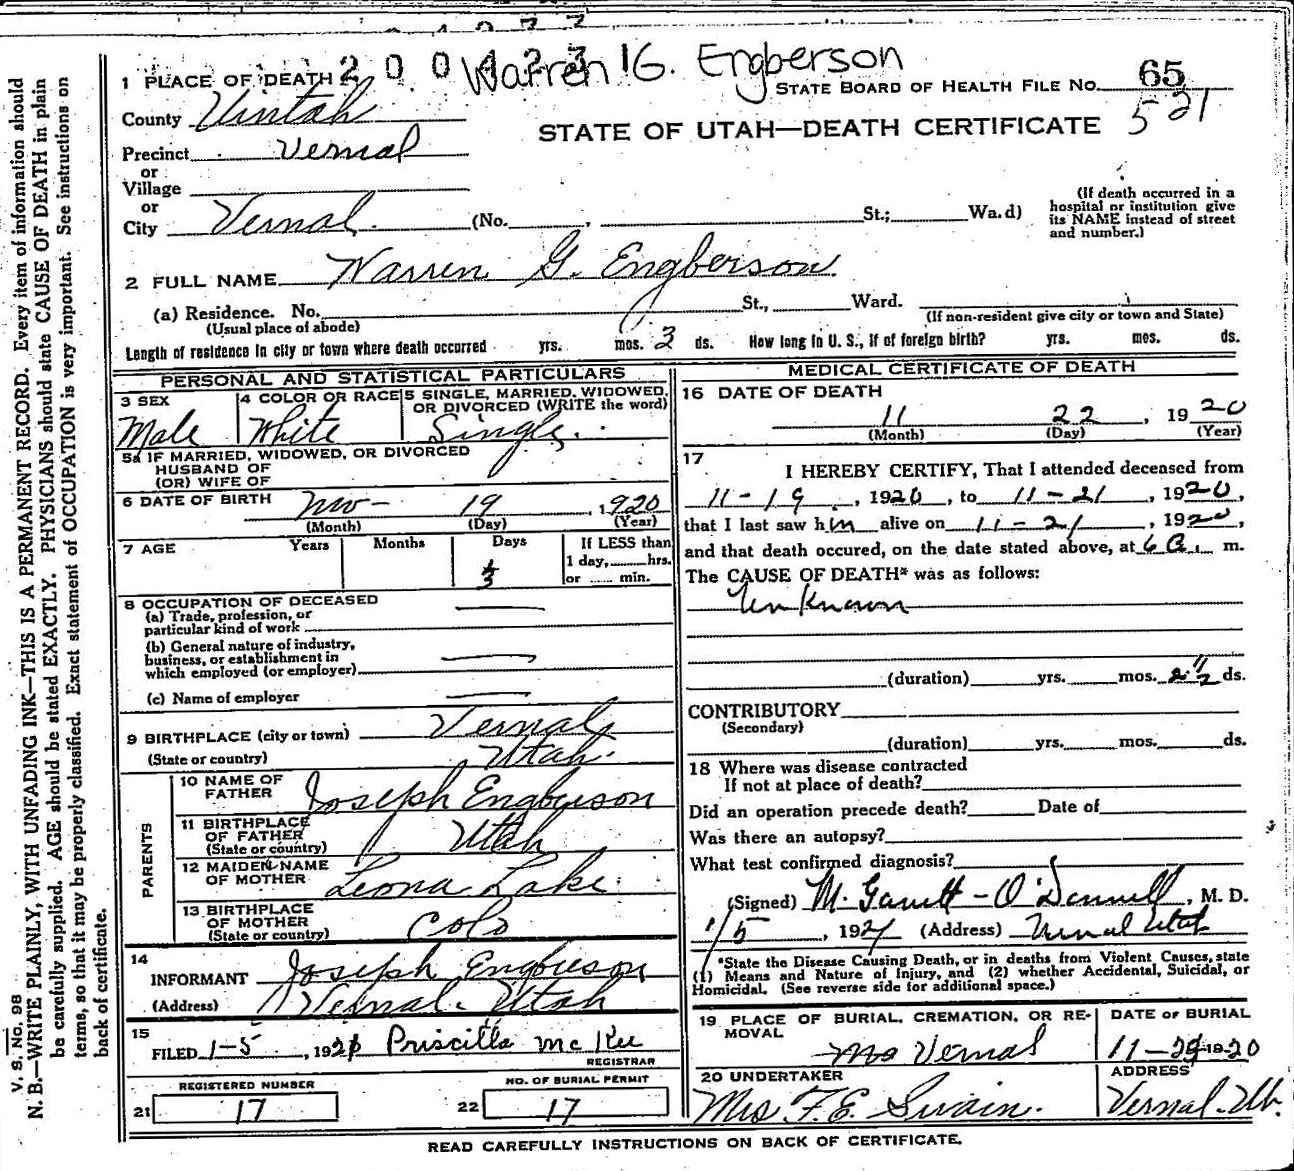 2 0 0 4 2 3 Warren G. Engberson
1 PLACE OF DEATH
STATE BOARD OF HEALTH FILE NO. 65
521
County Uintah
STATE OF UTAH—DEATH CERTIFICATE
Precinct Vernal
or
Village
or
City Vernal (No. , St.; Wa.d)
(If death occurred in a
hospital or institution give
its NAME instead of street
and number.)
2 FULL NAME Warren G. Engberson
(a) Residence. No. St., Ward.
(Usual place of abode)
(If non-resident give city or town and State)
Length of residence in city or town where death occurred yrs. mos. 3 ds. How long in U. S., if of foreign birth? yrs. mos. ds.
PERSONAL AND STATISTICAL PARTICULARS
3 SEX
Male
4 COLOR OR RACE
White
5 SINGLE, MARRIED, WIDOWED,
OR DIVORCED (WRITE the word)
Single
5a IF MARRIED, WIDOWED, OR DIVORCED
HUSBAND OF
(OR) WIFE OF
6 DATE OF BIRTH Nov- 19, 1920
(Month) (Day) (Year)
7 AGE Years Months Days If LESS than
1 day, hrs.
or min.
3
8 OCCUPATION OF DECEASED
(a) Trade, profession, or
particular kind of work
(b) General nature of industry,
business, or establishment in
which employed (or employer)
(c) Name of employer
9 BIRTHPLACE (city or town) Vernal
(State or country) Utah.
PARENTS
10 NAME OF
FATHER Joseph Engberson
11 BIRTHPLACE
OF FATHER
(State or country) Utah
12 MAIDEN NAME
OF MOTHER Leona Lake
13 BIRTHPLACE
OF MOTHER
(State or country) Colo
14
INFORMANT Joseph Engberson
(Address) Vernal. Utah
15
FILED 1-5, 1921 Priscilla McKee
REGISTRAR
REGISTERED NUMBER
21 17
NO. OF BURIAL PERMIT
22 17
MEDICAL CERTIFICATE OF DEATH
16 DATE OF DEATH
11 22, 1920
(Month) (Day) (Year)
17
I HEREBY CERTIFY, That I attended deceased from
11-19, 1920, to 11-21, 1920,
that I last saw him alive on 11-21, 1920,
and that death occured, on the date stated above, at 6 a. m.
The CAUSE OF DEATH* was as follows:
Unknown
(duration) yrs. mos. 2 1/2 ds.
CONTRIBUTORY
(Secondary)
(duration) yrs. mos. ds.
18 Where was disease contracted
If not at place of death?
Did an operation precede death? Date of
Was there an autopsy?
What test confirmed diagnosis?
(Signed) M. Garrett-O'Donnell, M. D.
1/5, 1921 (Address) Vernal Utah
*State the Disease Causing Death, or in deaths from Violent Causes, state
(1) Means and Nature of Injury, and (2) whether Accidental, Suicidal, or
Homicidal. (See reverse side for additional space.)
19 PLACE OF BURIAL, CREMATION, OR RE-
MOVAL
Vernal
DATE OF BURIAL
1920
20 UNDERTAKER
Mrs F. E. Swain.
ADDRESS
Vernal. Ut.
READ CAREFULLY INSTRUCTIONS ON BACK OF CERTIFICATE.
V. S. No. 98
N. B.—WRITE PLAINLY, WITH UNFADING INK—THIS IS A PERMANENT RECORD. Every item of information should
be carefully supplied. AGE should be stated EXACTLY. PHYSICIANS should state CAUSE OF DEATH in plain
terms, so that it may be properly classified. Exact statement of OCCUPATION is very important. See instructions on
back of certificate.